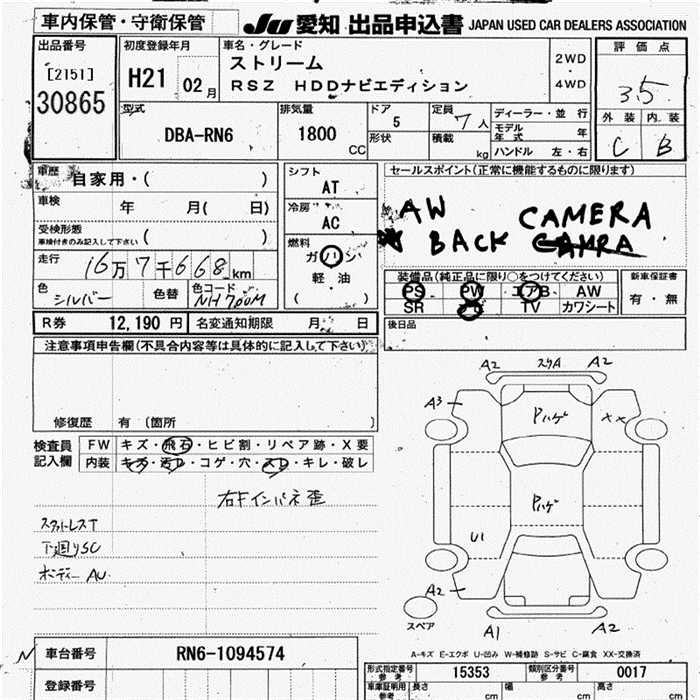 車内保管・守衛保管
JU 愛知 出品申込書 JAPAN USED CAR DEALERS ASSOCIATION
出品番号
[2151]
30865
初度登録年月
H21 02月
車名・グレード
ストリーム
RSZ HDDナビエディション
2WD
・
4WD
評価点
3.5
外装 内装
C B
型式
DBA-RN6
排気量
1800
CC
ドア
5
形状
定員
7人
積載
kg
ディーラー・並行
モデル年式 年
ハンドル 左・右
車歴
自家用・( )
車検 年 月( 日)
受検形態
車検付きのみ記入して下さい ( )
走行 16万7千668km
色 シルバー 色替 色コード NH700M
シフト
AT
冷房
AC
燃料
ガ ハ シ
軽・油
( )
セールスポイント(正常に機能するものに限ります)
AW
BACK CAMERA
装備品(純正品に限り○をつけてください)
PS PW エアB AW
SR ナビ TV カワシート
新車保証書
有・無
後日品
R券 12,190 円 名変通知期限 月 日
注意事項申告欄(不具合内容等は具体的に記入して下さい)
修復歴 有 〔箇所 〕
検査員記入欄
FW キズ・飛石・ヒビ割・リペア跡・X要
内装 キズ・汚レ・コゲ・穴・スレ・キレ・破レ
右Fインパネ歪
スタットレスT
下廻りSC
ボディーAU
A2 スリA A2
A3
Pハゲ
XX
Pハゲ
U1
A2
スペア
A1 A2
A-キズ E-エクボ U-凹み W-補修跡 S-サビ C-腐食 XX-交換済
車台番号 RN6-1094574
登録番号
型式指定番号 参考 15353 類別区分番号 参考 0017
車庫証明用 参考 長さ cm 幅 cm 高さ cm